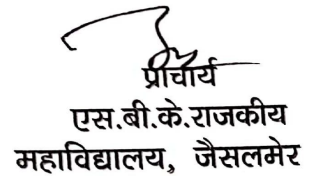 प्राचार्य
एस.बी.के.राजकीय
महाविद्यालय, जैसलमेर